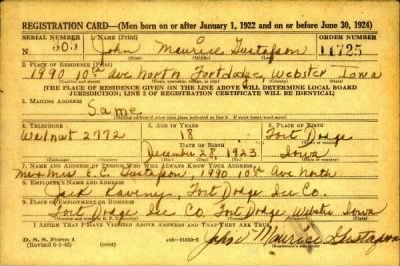 REGISTRATION CARD—(Men born on or after January 1, 1922 and on or before June 30, 1924)
SERIAL NUMBER 1. NAME (Print) ORDER NUMBER
N 305 John Maurice Gustafson 11725
(First) (Middle) (Last)
2. PLACE OF RESIDENCE (Print)
1990 10th Ave North Fort Dodge, Webster Iowa
[THE PLACE OF RESIDENCE GIVEN ON THE LINE ABOVE WILL DETERMINE LOCAL BOARD
JURISDICTION; LINE 2 OF REGISTRATION CERTIFICATE WILL BE IDENTICAL]
3. MAILING ADDRESS
Same
4. TELEPHONE 5. AGE IN YEARS 6. PLACE OF BIRTH
Walnut 2772 18 Fort Dodge
DATE OF BIRTH
December 28, 1923 Iowa
7. NAME AND ADDRESS OF PERSON WHO WILL ALWAYS KNOW YOUR ADDRESS
Mr & Mrs E. C. Gustafson, 1990 10th Ave North
8. EMPLOYER'S NAME AND ADDRESS
Jack Fort Dodge Ice Co.
9. PLACE OF EMPLOYMENT OR BUSINESS
Fort Dodge Ice Co. Fort Dodge Webster Iowa
I AFFIRM THAT I HAVE VERIFIED ABOVE ANSWERS AND THAT THEY ARE TRUE.
D. S. S. Form 1
John Maurice Gustafson